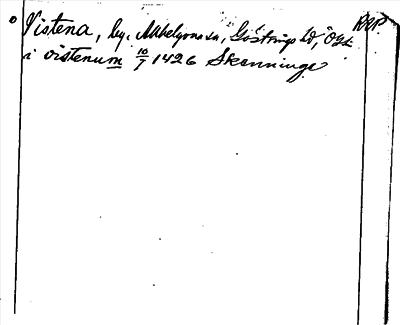 Vistena, by, Allhelgona sn, Göstrings hd, Ögl. RAP
i vistenum 10/7 1426 Skenninge